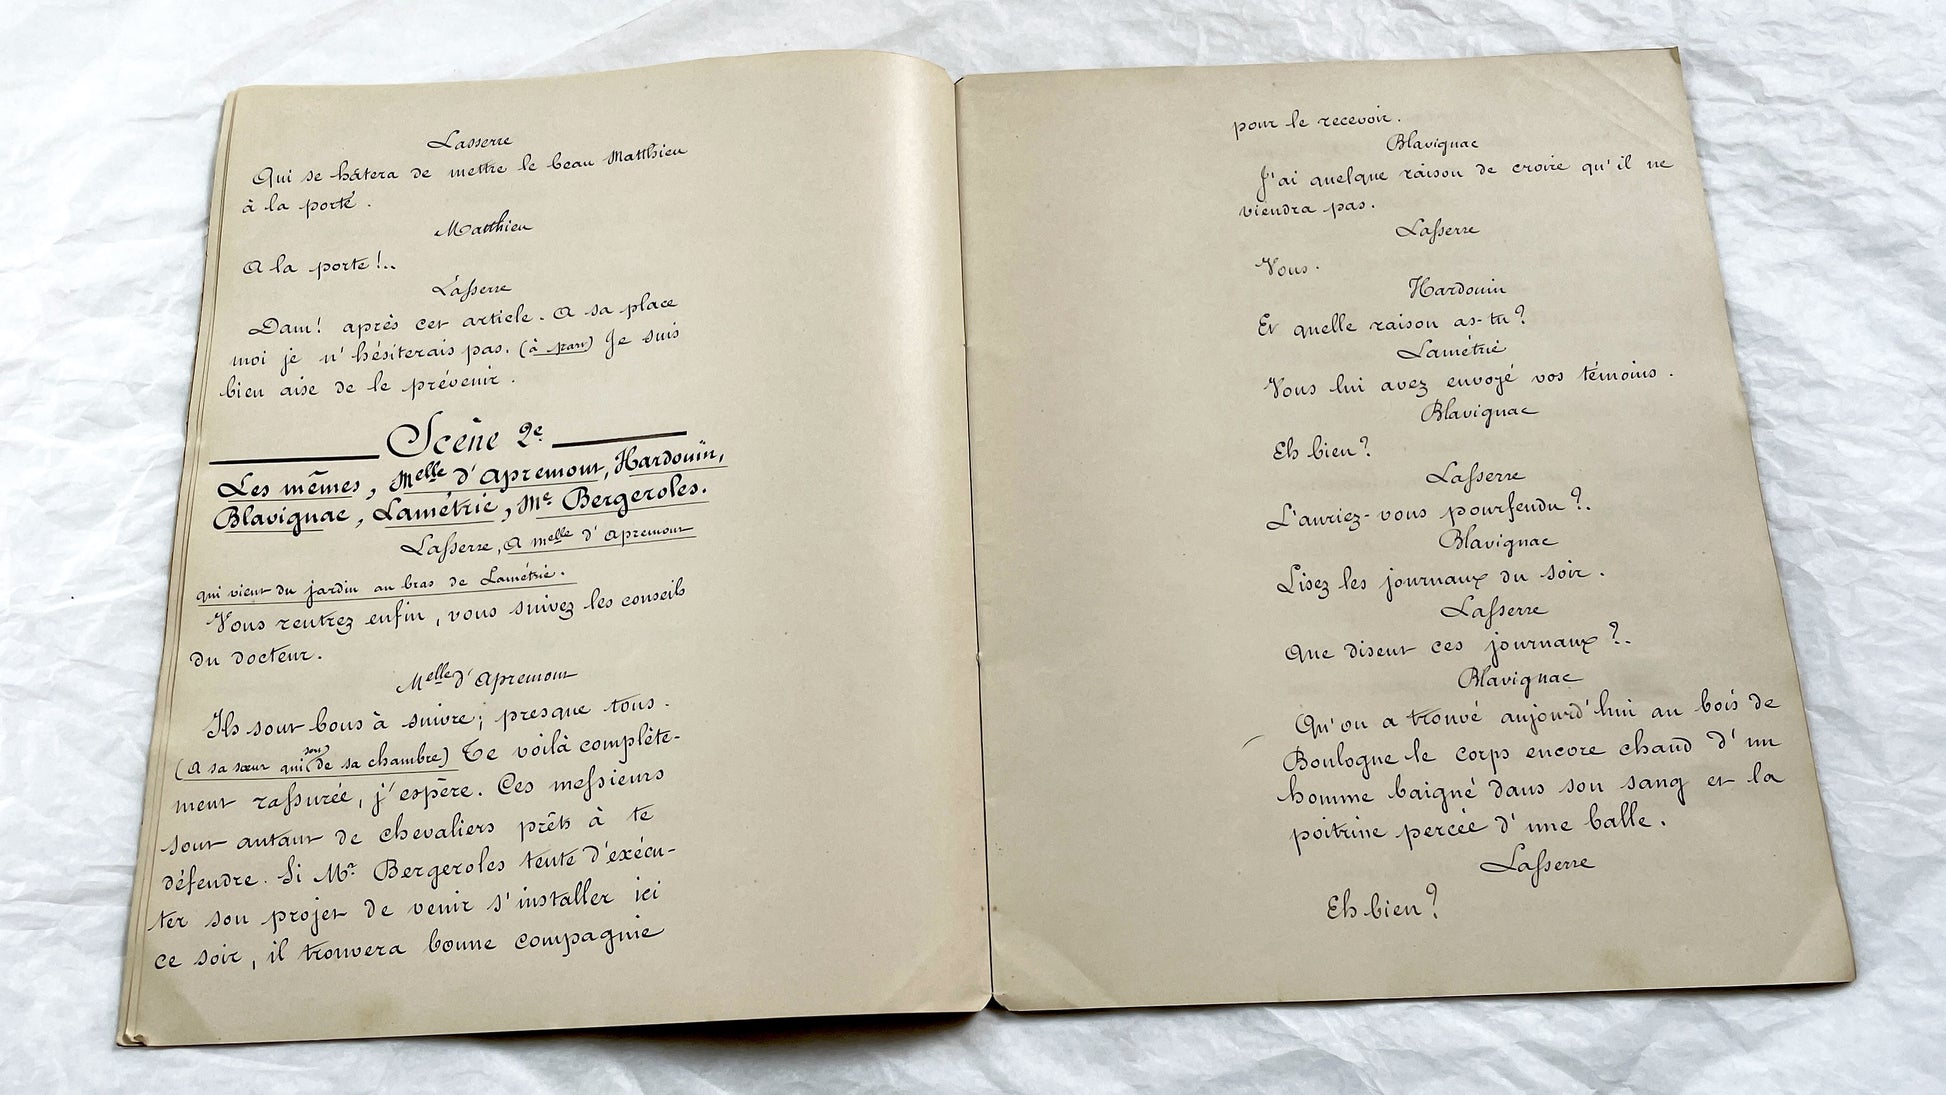 Lasserre
Qui se hâtera de mettre le beau Matthieu
à la porte.
Matthieu
A la porte!..
Lasserre
Dam! après cet article. A sa place
moi je n'hésiterais pas. (à part) Je suis
bien aise de le prévenir.
Scène 2e
Les mêmes, Melle d'Apremont, Hardouin,
Blavignac, Lamétrie, Me Bergeroles.
Lasserre, A Melle d'Apremont
qui vient du jardin au bras de Lamétrie.
Vous rentrez enfin, vous suivez les conseils
du docteur.
Melle d'Apremont
Ils sont bons à suivre; presque tous.
(A sa sœur qui sort de sa chambre) Te voilà complète-
ment rassurée, j'espère. Ces messieurs
sont autant de chevaliers prêts à te
défendre. Si Mr Bergeroles tente d'exécu-
ter son projet de venir s'installer ici
ce soir, il trouvera bonne compagnie
pour le recevoir.
Blavignac
J'ai quelque raison de croire qu'il ne
viendra pas.
Lasserre
Vous.
Hardouin
Et quelle raison as-tu?
Lamétrie
Vous lui avez envoyé vos témoins.
Blavignac
Eh bien?
Lasserre
L'auriez-vous pourfendu?.
Blavignac
Lisez les journaux du soir.
Lasserre
Que disent ces journaux?.
Blavignac
Qu'on a trouvé aujourd'hui au bois de
Boulogne le corps encore chaud d'un
homme baigné dans son sang et la
poitrine percée d'une balle.
Lasserre
Eh bien?